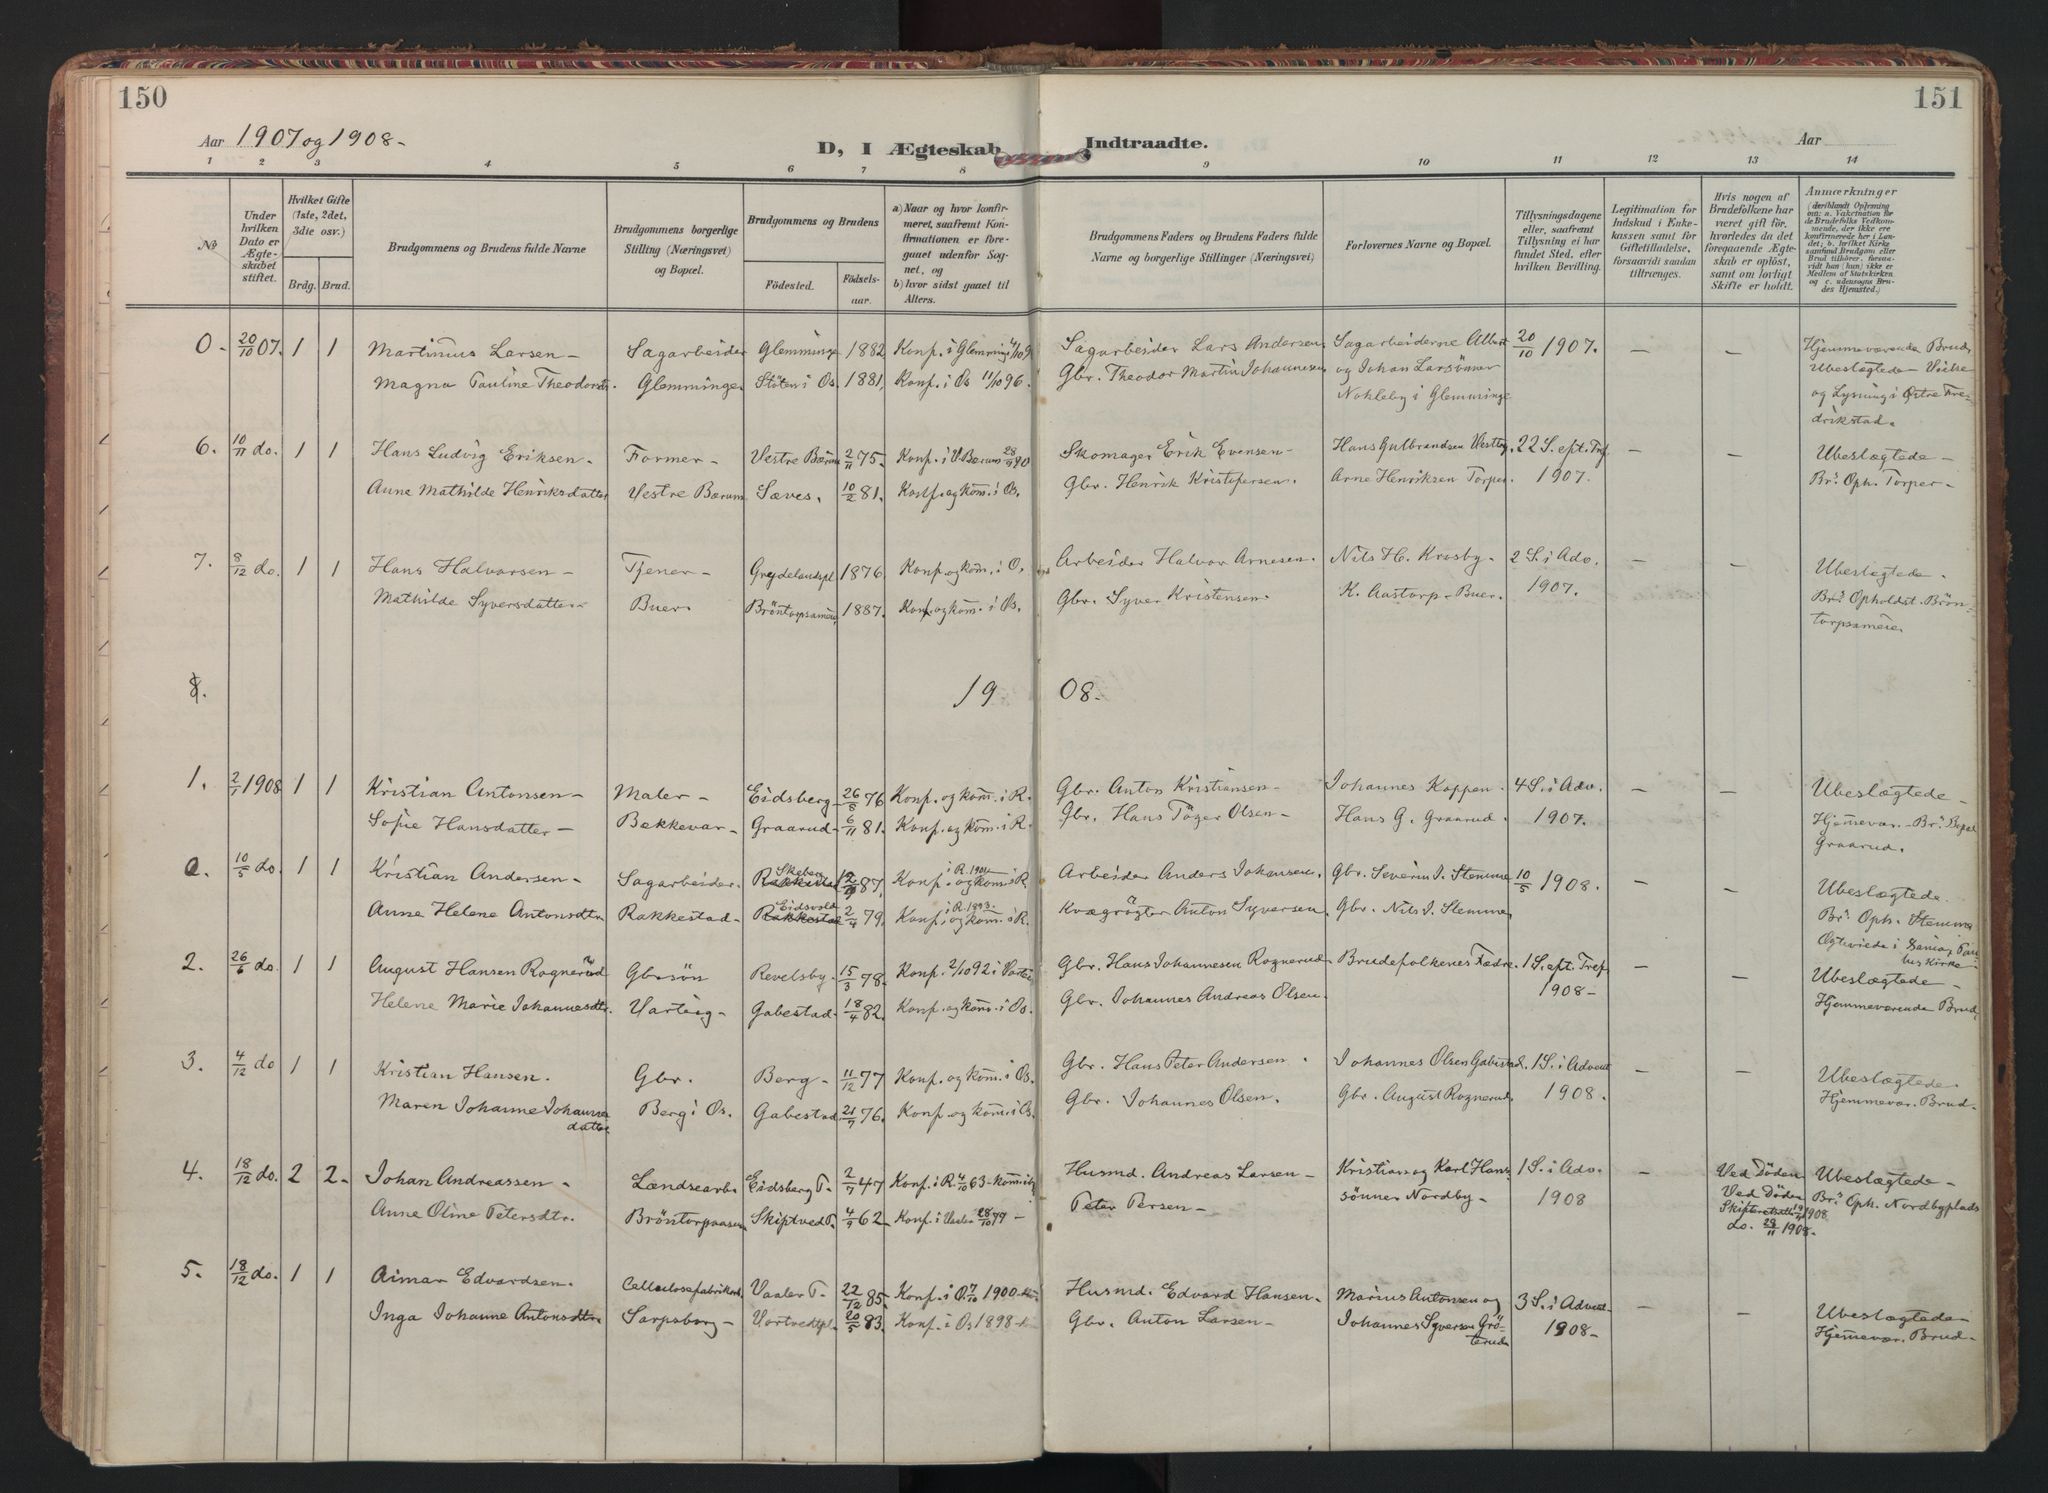 150
151
Aar 1907 og 1908-
D, I Ægteskab Indtraadte.
Aar
1 2 3 4 5 6 7 8 9 10 11 12 13 14
No
Under hvilken Dato er Ægteskabet stiftet.
Hvilket Gifte (1ste, 2det, 3die osv.)
Brdg. Brud.
Brudgommens og Brudens fulde Navne
Brudgommens borgerlige Stilling (Næringsvei) og Bopæl.
Brudgommens og Brudens
Födested.
Födselsaar.
a) Naar og hvor konfirmeret, saafremt Konfirmationen er foregaaet udenfor Sognet, og
b) hvor sidst gaaet til Alters.
Brudgommens Faders og Brudens Faders fulde Navne og borgerlige Stillinger (Næringsvei)
Forlovernes Navne og Bopæl.
Tillysningsdagene eller, saafremt Tillysning ei har fundet Sted, efter hvilken Bevilling.
Legitimation for Indskud i Enkekassen samt for Giftetilladelse, forsaavidt saadan tiltrænges.
Hvis nogen af Brudefolkene har været gift för, hvorledes da det foregaaende Ægteskab er oplöst, samt om lovligt Skifte er holdt.
Anmærkninger (deriblandt Oplysning om: a. Vakcination for de Brudefolks Vedkommende, der ikke ere konfirmerede her i Landet; b. hvilket Kirkesamfund Brudgom eller Brud tilhörer, forsaavidt han (hun) ikke er Medlem af Statskirken og c. udensogns Brudes Hjemsted.)
0. 20/10 07. 1 1 Martinius Larsen - Sagarbeider Glemminge 1882 Konf. i Glemminge Sagarbeider Lars Andersen Sagarbeiderne Albert 20/10 1907. - - Hjemmeværende Brud
Magna Pauline Theodorsdtr. Glemminge Stöten i Os 1881. Konf. i Os 11/10 96. Gbr. Theodor Martin Johannesen og Johan Larsönner Ubeslægtede - Vielse
Nokleby i Glemminge og Lysning i Östre Fredrikstad.
6. 10/11 do. 1 1 Hans Ludvig Eriksen - Former - Vestre Bærum 2/11 75. Konf. i V Bærum 28/9 90 Skomager Erik Evensen - Hans Gulbrandsen Vestby 22 S. ept. Tref. - - Ubeslægtede -
Anne Mathilde Henriksdatter Vestre Bærum Sæves. 10/2 81. Konf. og kom. i Os. Gbr. Henrik Kristofersen. Arne Henriksen Torper. 1907. Br.s Oph. Torper -
7. 8/12 do. 1 1 Hans Halvorsen - Tjener - Greydelandspl 1876. Konf. og kom. i O. Arbeider Halvor Arnesen. Nils H. Krosby - 2 S. i Adv. - - Ubeslægtede.
Mathilde Syversdatter - Buer - Bröntorpsameie 1887. Konf. og kom. i Os. Gbr. Syver Kristensen. K. Aastorp - Buer. 1907. Br.s Opholdst. Bröntorpsameie
8. 19 08.
1. 2/1 1908 1 1 Kristian Antonsen - Maler - Eidsberg 26/8 76 Konf. og kom. i R. Gbr. Anton Kristiansen - Johannes Koppen. 4 S. i Adv. - - Ubeslægtede -
Sofie Hansdatter - Bekkevar - Graarud 6/11 81. Konf. og kom. i R. Gbr. Hans Töger Olsen - Hans G. Graarud. 1907. Hjemmevær. Br.s Bopæl Graarud.
0. 10/5 do. 1 1 Kristian Andersen - Sagarbeider. Rakkestad Skeberg 87. Konf. i R. 1901 og kom. i R. Arbeider Anders Johansen. Gbr. Severin J. Stemme 10/5 1908. - - Ubeslægtede.
Anne Helene Antonsdtr Rakkestad - Rakkestad Eidsvold 2/4 79. Konf. i R. 1893. og kom. i R. Kvægrögter Anton Syversen. Gbr. Nils J. Stemme Br.s Oph. Stemme
Ægteviede i
2. 26/6 do. 1 1 August Hansen Rognerud Gbr. sön Revelsby - 15/3 78. Konf. 2/10 92 i Gbr. Hans Johannesen Rognerud Brudefolkenes Fædre. 1 S. ept. Tref. - - Ubeslægtede -
Helene Marie Johannesdtr. Varteig - Gabestad - 18/4 82. Konf. og kom. i Os. Gbr. Johannes Andreas Olsen. 1908 - Hjemmeværende Brud.
3. 4/12 do 1 1 Kristian Hansen. Gbr. Berg - 11/12 77 Konf. og kom. i Os. Gbr. Hans Peter Andersen. Johannes Olsen Gabestad. 1 S. i Advent - - Ubeslægtede.
Maren Johanne Johannesdatter Berg i Os. Gabestad. 21/7 76. Konf. og kom. i Os. Gbr. Johannes Olsen. Gbr. August Rognerud. 1908. Hjemmevær. Brud -
4. 18/12 do. 2 2 - Johan Andreassen - Lændsearb. Eidsberg T. 2/7 47 Konf. i R. 4/10 63 - Husmd. Andreas Larsen - Kristian og Karl Hans- 1 S. i Adv. - Ved Döden Ubeslægtede -
Anne Oline Petersdtr. Bröntorpaasen Skiptved T. 4/9 62 - Konf. i Vaaler - Peter Persen - sönner Nordby - 1908 Ved Döden 1908 Br.s Oph. Nordbyplads
do. 1908.
5. 18/12 do. 1 1 Aimar Edvardsen. Cellulosefabrikarb. Vaaler T. 22/12 85. Konf. i O. 7/10 1900. Husmd. Edvard Hansen. Marius Antonsen og 3 S. i Advent - - Ubeslægtede
Inga Johanne Antonsdtr Sarpsborg - Vortvedtpl. 20/5 83. Konf. i Os 1898 Gbr. Anton Larsen - Johannes Syversen Gröterud 1908 - Hjemmevær. Brud -